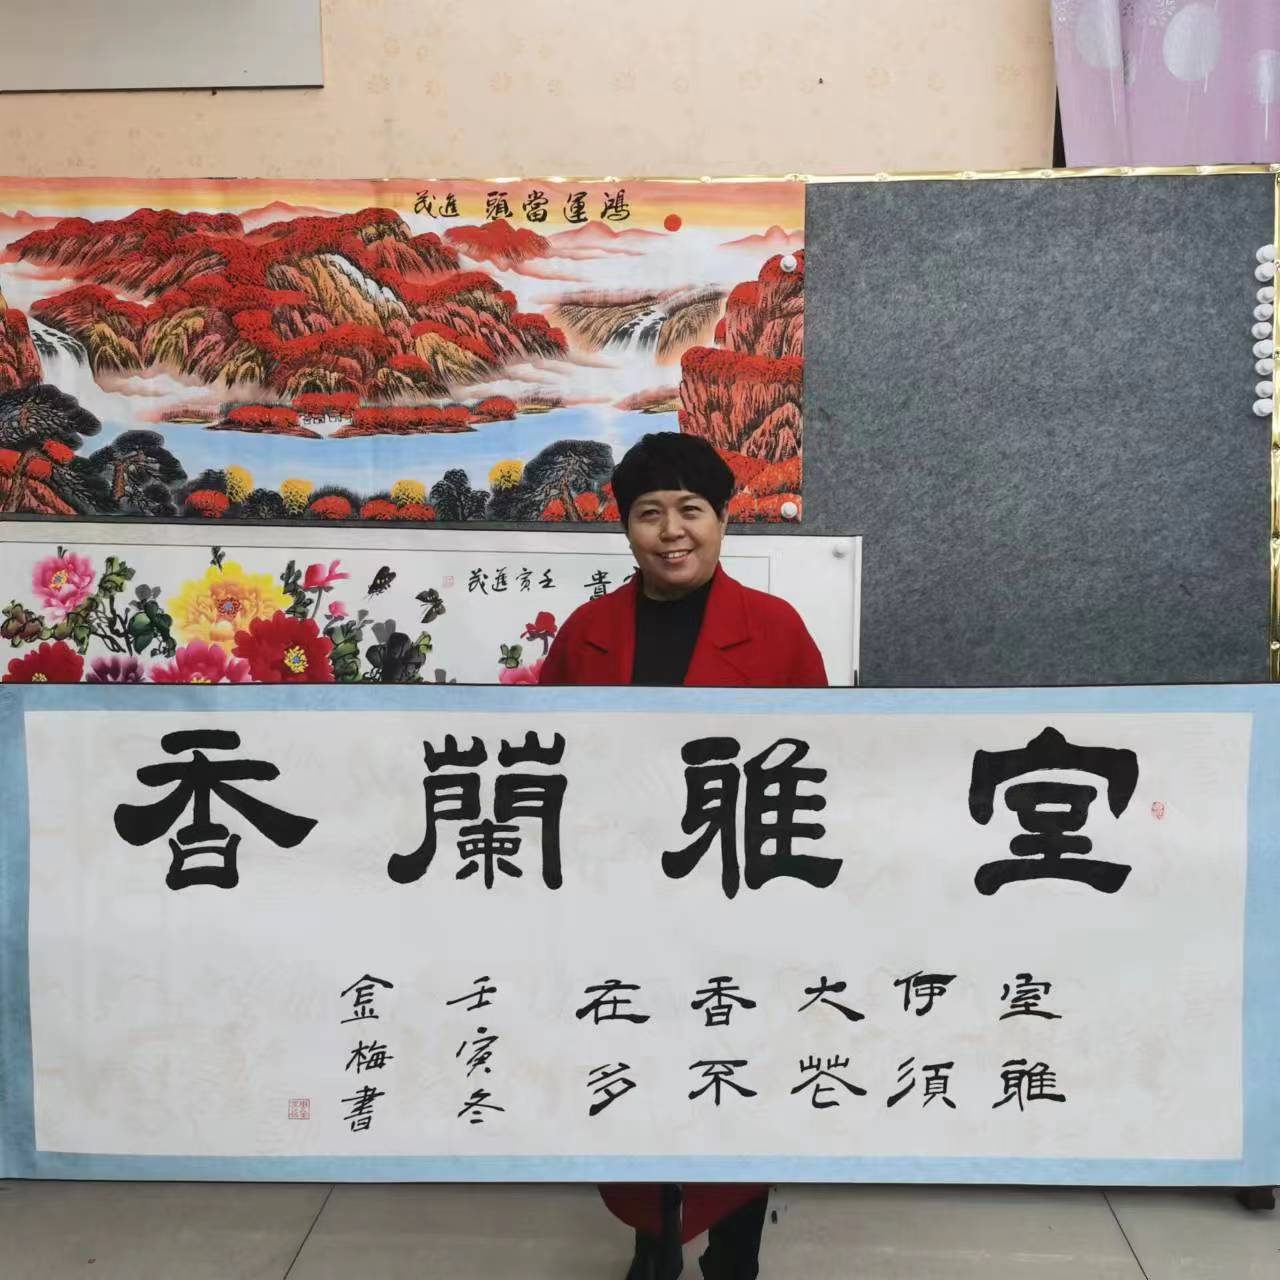 鴻運當頭 進茂
貴 壬寅進茂
室雅蘭香
室雅
何須
大花
香不
在多
壬寅冬
金梅書